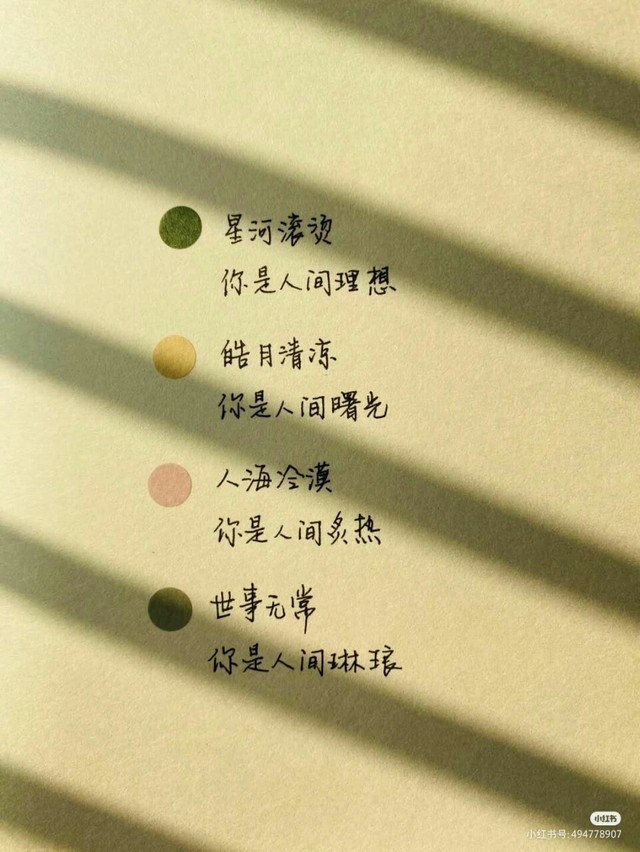 星河滚烫
你是人间理想
皓月清凉
你是人间曙光
人海冷漠
你是人间炙热
世事无常
你是人间琳琅
小红书
小红书号:494778907